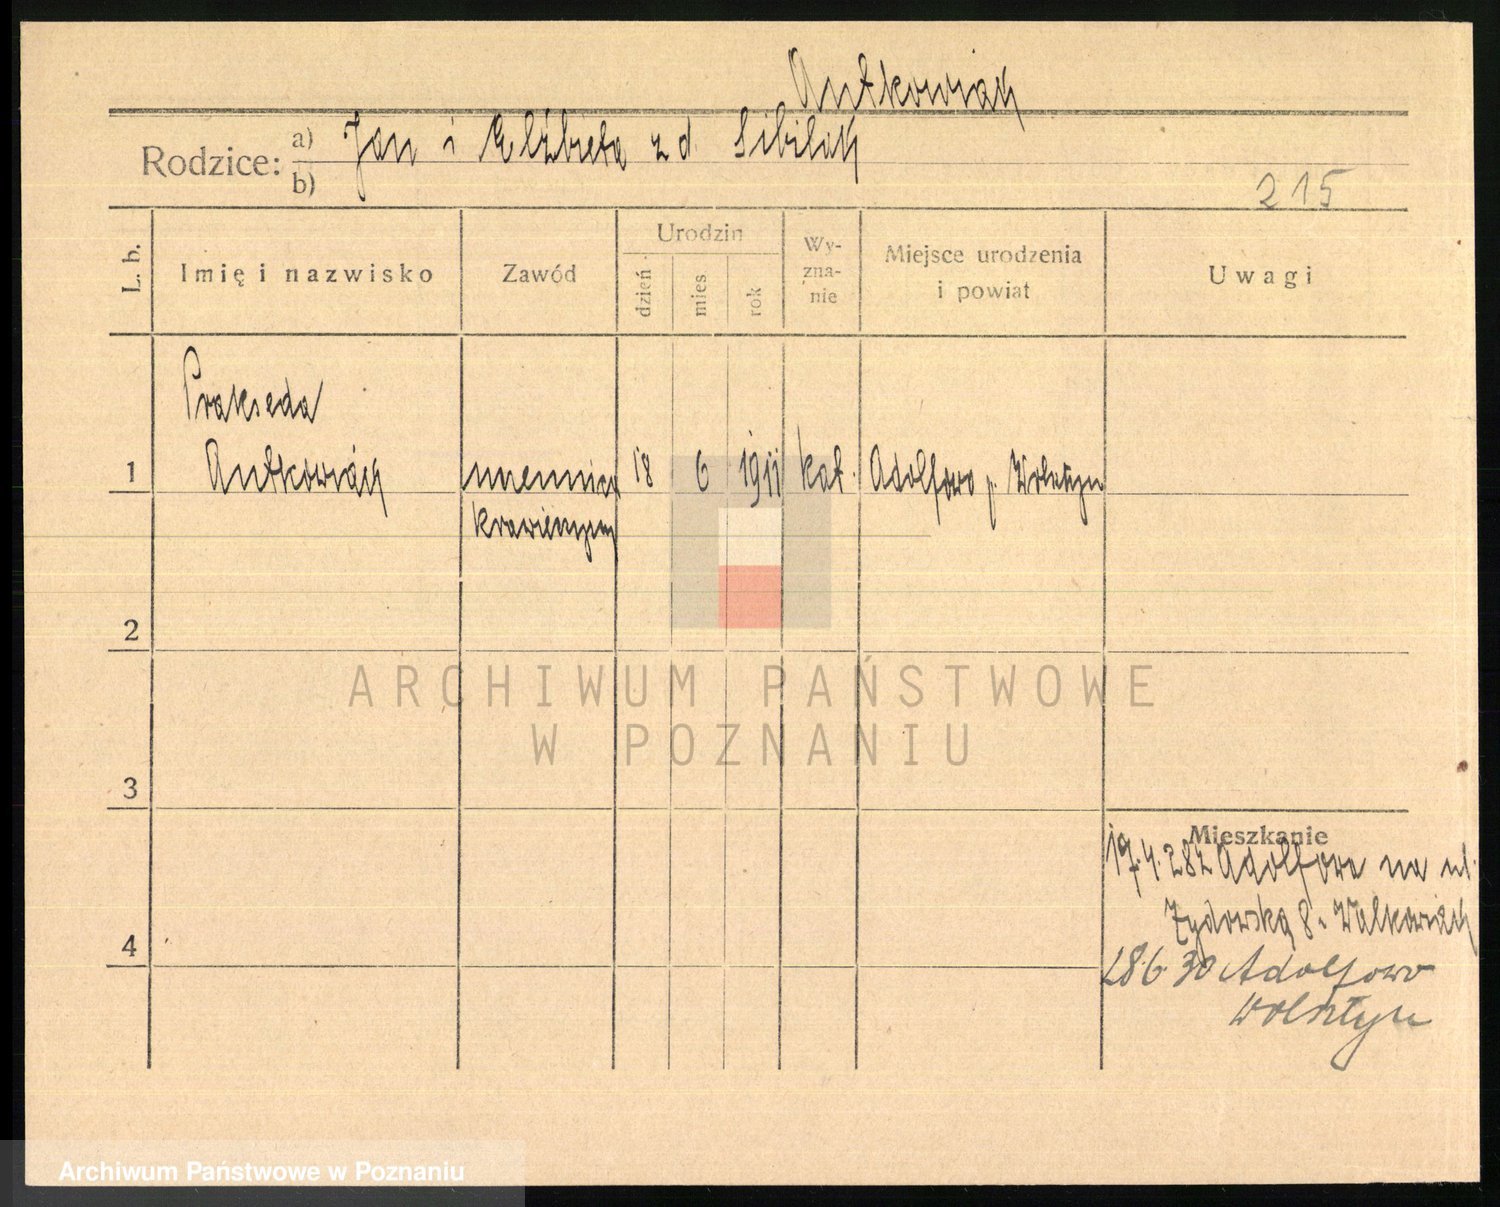 Antkowiak
Rodzice: a) Jan i Elżbieta z d. Sibilak
b)
215
L. b.
Imię i nazwisko
Zawód
Urodzin
dzień
mies
rok
Wy-
zna-
nie
Miejsce urodzenia
i powiat
Uwagi
Prakseda
1 Antkowiak uczennica 18 6 1911 kat. Adolfowo p. Wolsztyn
krawieczyzny
2
ARCHIWUM PAŃSTWOWE
W POZNANIU
3
Mieszkanie
17.4.28 z Adolfowa na ul.
Żydowską 8 Walkowiak
4
28.6.30 Adolfowo
Wolsztyn
Archiwum Państwowe w Poznaniu